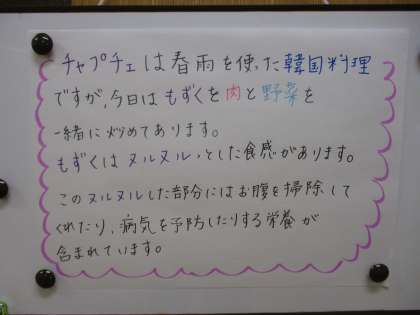 チャプチェは春雨を使った韓国料理
ですが、今日はもずくを肉と野菜を
一緒に炒めてあります。
もずくはヌルヌルっとした食感があります。
このヌルヌルした部分にはお腹を掃除して
くれたり、病気を予防したりする栄養が
含まれています。